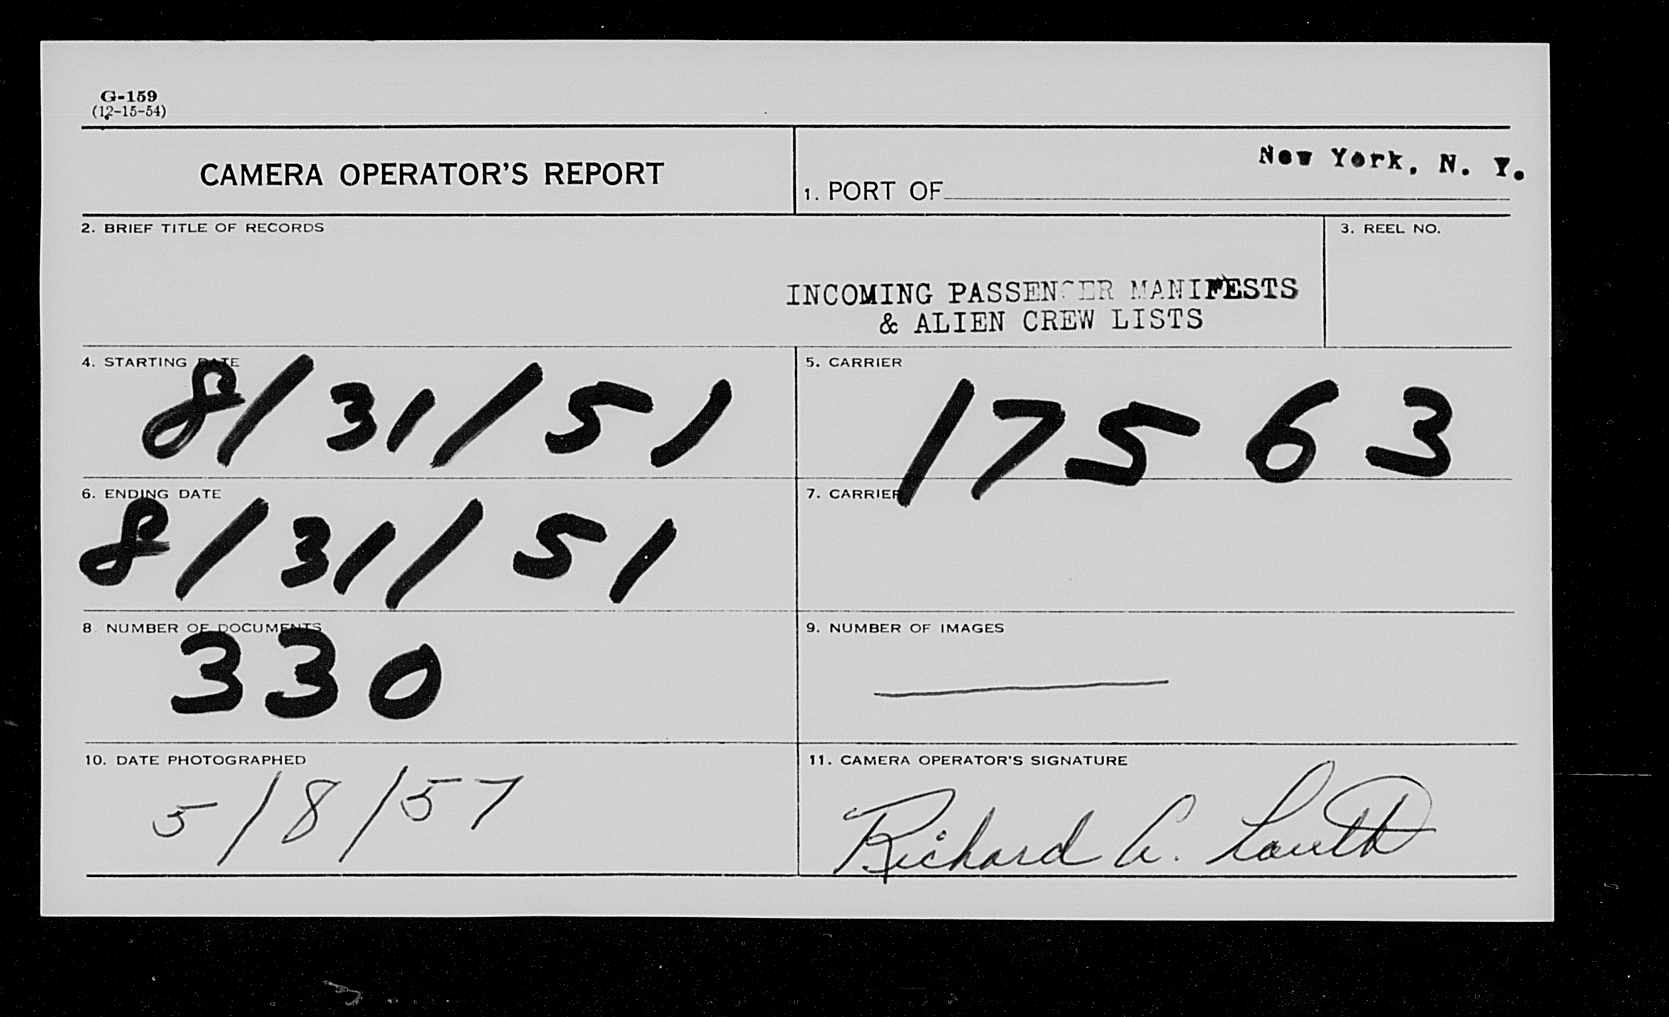 G-159
(12-15-54)
CAMERA OPERATOR'S REPORT
1. PORT OF New York, N. Y.
2. BRIEF TITLE OF RECORDS
INCOMING PASSENGER MANIFESTS
& ALIEN CREW LISTS
3. REEL NO.
4. STARTING DATE
8/31/51
5. CARRIER
17563
6. ENDING DATE
8/31/51
7. CARRIER
8 NUMBER OF DOCUMENTS
330
9. NUMBER OF IMAGES
10. DATE PHOTOGRAPHED
5/8/57
11. CAMERA OPERATOR'S SIGNATURE
Richard A.